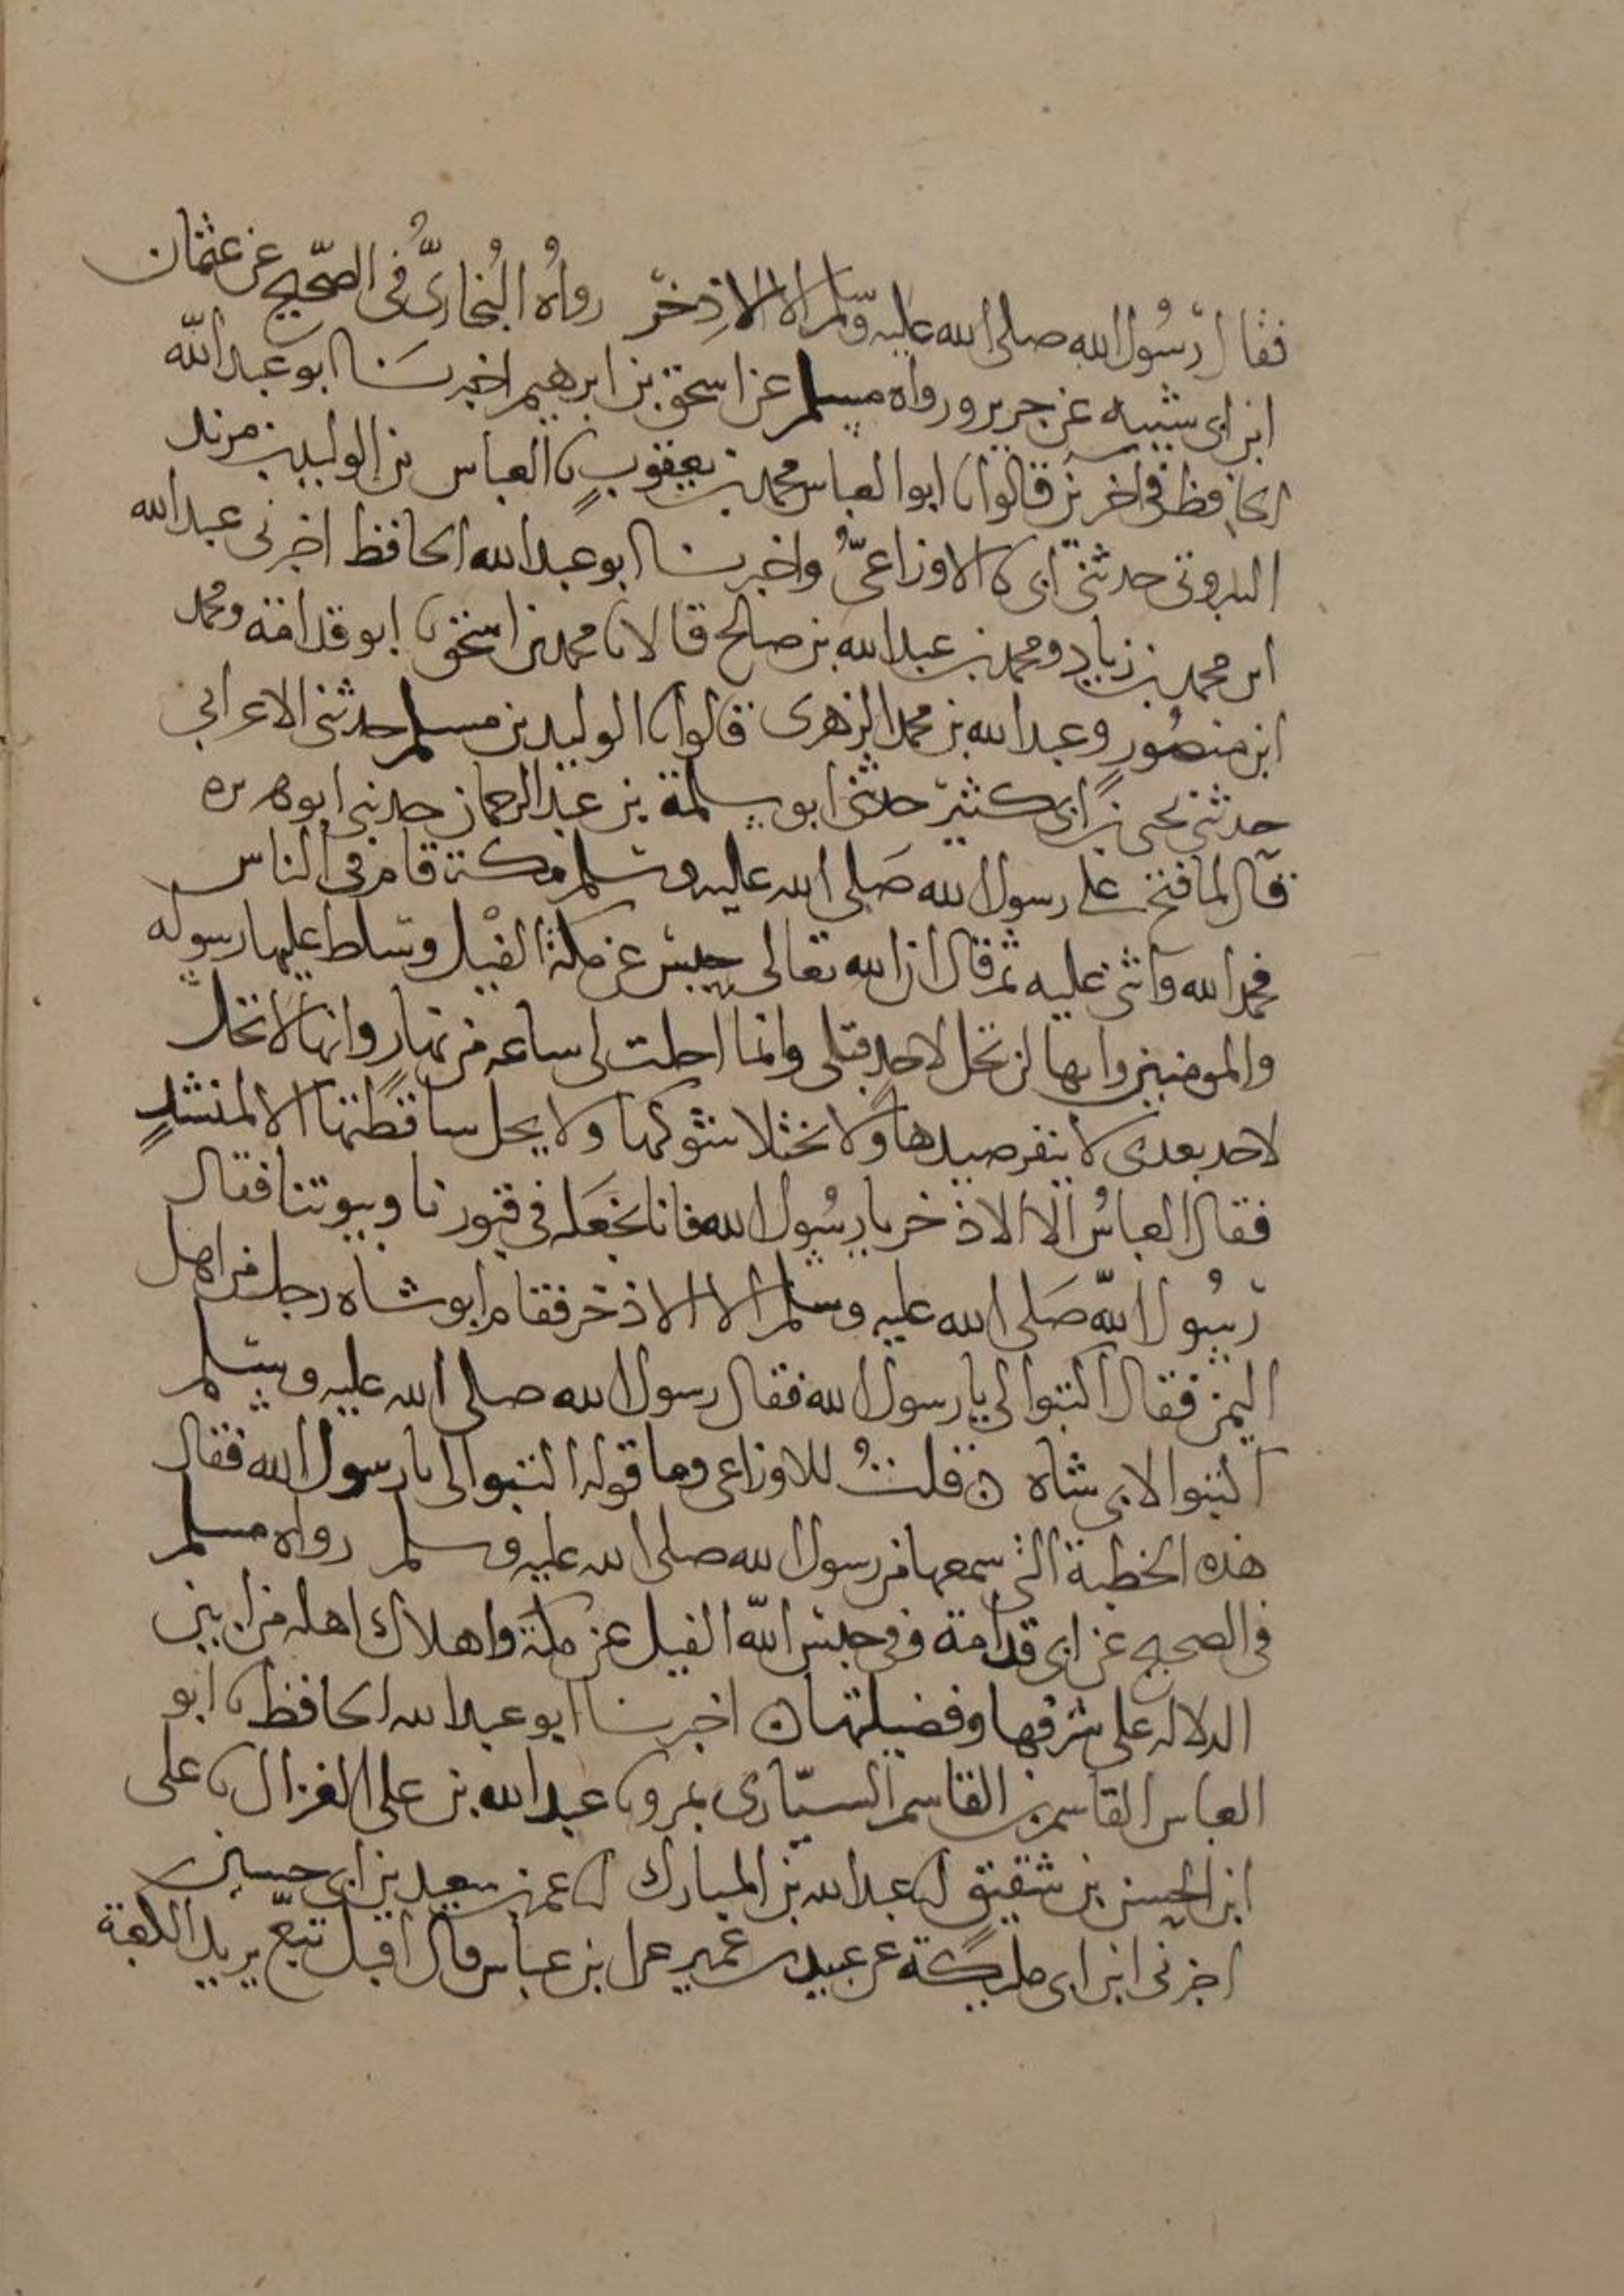 فقال رسول الله صلى الله عليه وسلم الا الاذخر رواه البخاري في الصحيح عن عثمان
ابن ابي شيبه عن جرير ورواه مسلم عن اسحق بن ابرهيم اخبرنا ابو عبد الله
الحافظ في اخرين قالوا نا ابو العباس محمد بن يعقوب نا العباس بن الوليد بن مزيد
البيروتي حدثني ابي نا الاوزاعي واخبرنا ابو عبد الله الحافظ اخبرني عبد الله
ابن محمد بن زياد ومحمد بن عبد الله بن صالح قالا نا محمد بن اسحق نا ابو قدامة ومحمد
ابن منصور وعبد الله بن محمد الزهرى قالوا نا الوليد بن مسلم حدثني الاعرابي
حدثني يحيى بن ابي كثير حدثني ابو سلمة بن عبد الرحمان حدثني ابو هريره
قال لما فتح على رسول الله صلى الله عليه وسلم مكة قام في الناس
فحمد الله واثنى عليه ثم قال ان الله تعالى حبس عن مكة الفيل وسلط عليها رسوله
والمومنين وانها لن تحل لاحد قبلي وانما احلت لي ساعه من نهار وانها لا تحل
لاحد بعدى لا ينفر صيدها ولا يختلا شوكها ولا يحل ساقطتها الا لمنشد
فقال العباس الا الاذخر يا رسول الله فانا نجعله في قبورنا وبيوتنا فقال
رسول الله صلى الله عليه وسلم الا الاذخر فقام ابو شاه رجل من اهل
اليمن فقال اكتبوا لي يا رسول الله فقال رسول الله صلى الله عليه وسلم
اكتبوا لابي شاه ن قلت للاوزاعي وما قوله اكتبوا لي يا رسول الله فقال
هذه الخطبة التي سمعها من رسول الله صلى الله عليه وسلم رواه مسلم
في الصحيح عن ابي قدامة وفي حبس الله الفيل عن مكة واهلاك اهله من ابين
الدلاله على شرفها وفضيلتها ن اخبرنا ابو عبد الله الحافظ نا ابو
العباس القاسم بن القاسم السيّارى بمرو نا عبد الله بن على الغزال نا على
ابن الحسن بن شقيق نا عبد الله بن المبارك نا عمر بن سعيد بن ابي حسين
اخبرني ابن ابي مليكة عن عبيد بن عمير عن ابن عباس قال اقبل تبع يريد الكعبة